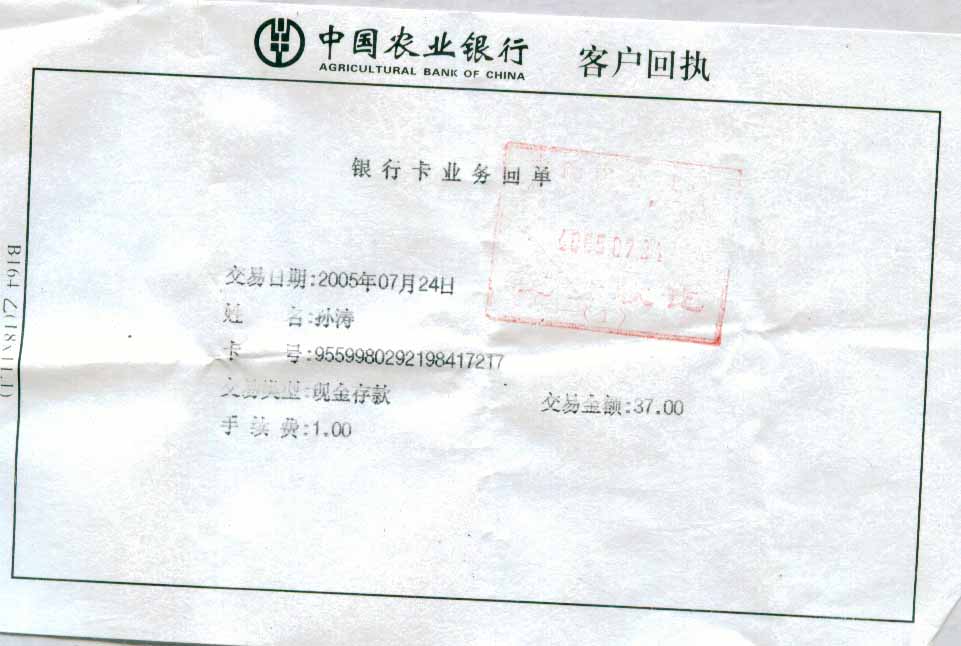 中国农业银行 客户回执
AGRICULTURAL BANK OF CHINA
银行卡业务回单
交易日期:2005年07月24日
姓 名:孙涛
卡 号:9559980292198417217
交易类型:现金存款 交易金额:37.00
手续费:1.00